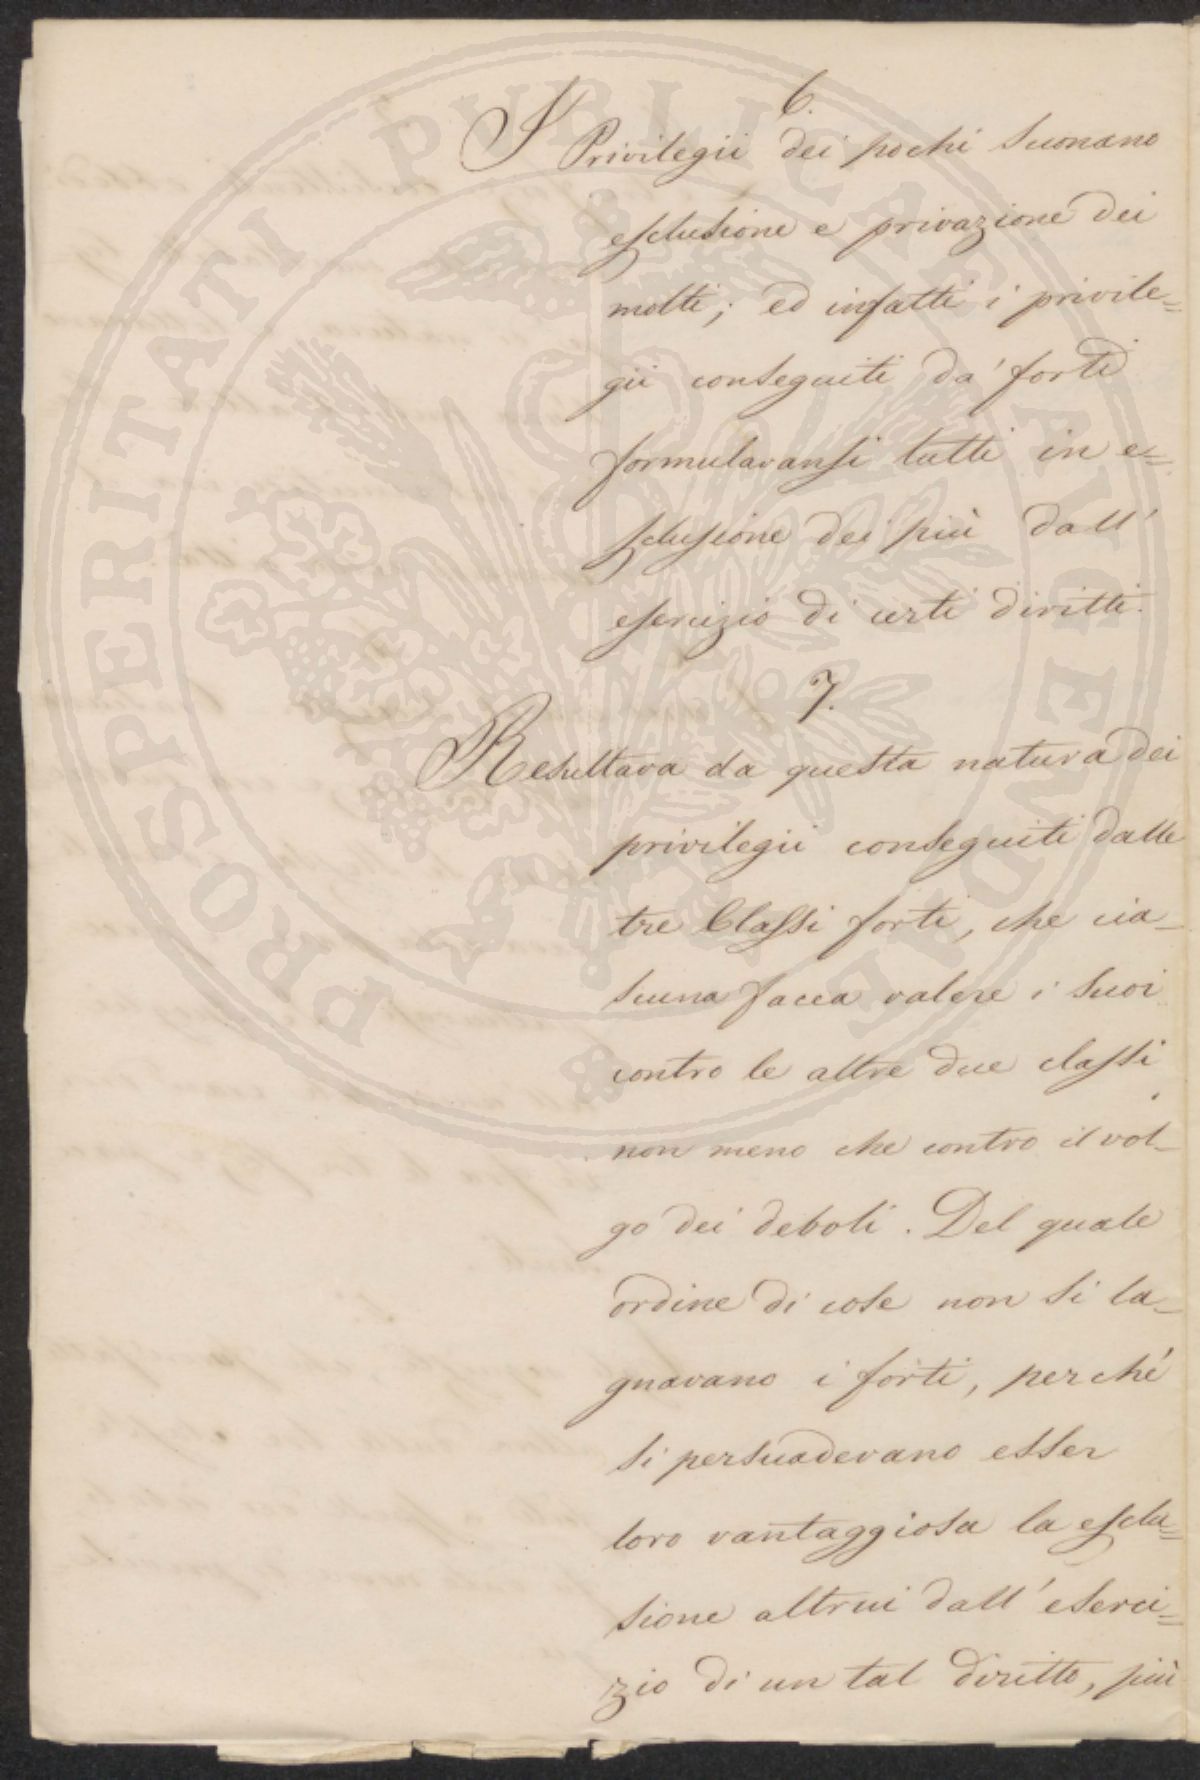 6.
I Privilegii dei pochi suonano
esclusione e privazione dei
molti; ed infatti i privile=
gii conseguiti da' forti
formulavansi tutti in e=
sclusione dei più dall'
esercizio di certi diritti.
7.
Resultava da questa natura dei
privilegii conseguiti dalle
tre Classi forti, che cia-
scuna facea valere i suoi
contro le altre due classi
non meno che contro il vol-
go dei deboli. Del quale
ordine di cose non si la-
gnavano i forti, perchè
si persuadevano esser
loro vantaggiosa la esclu=
sione altrui dall'eserci=
zio di un tal diritto, più
PROSPERITATI PUBLICAE AUGENDAE